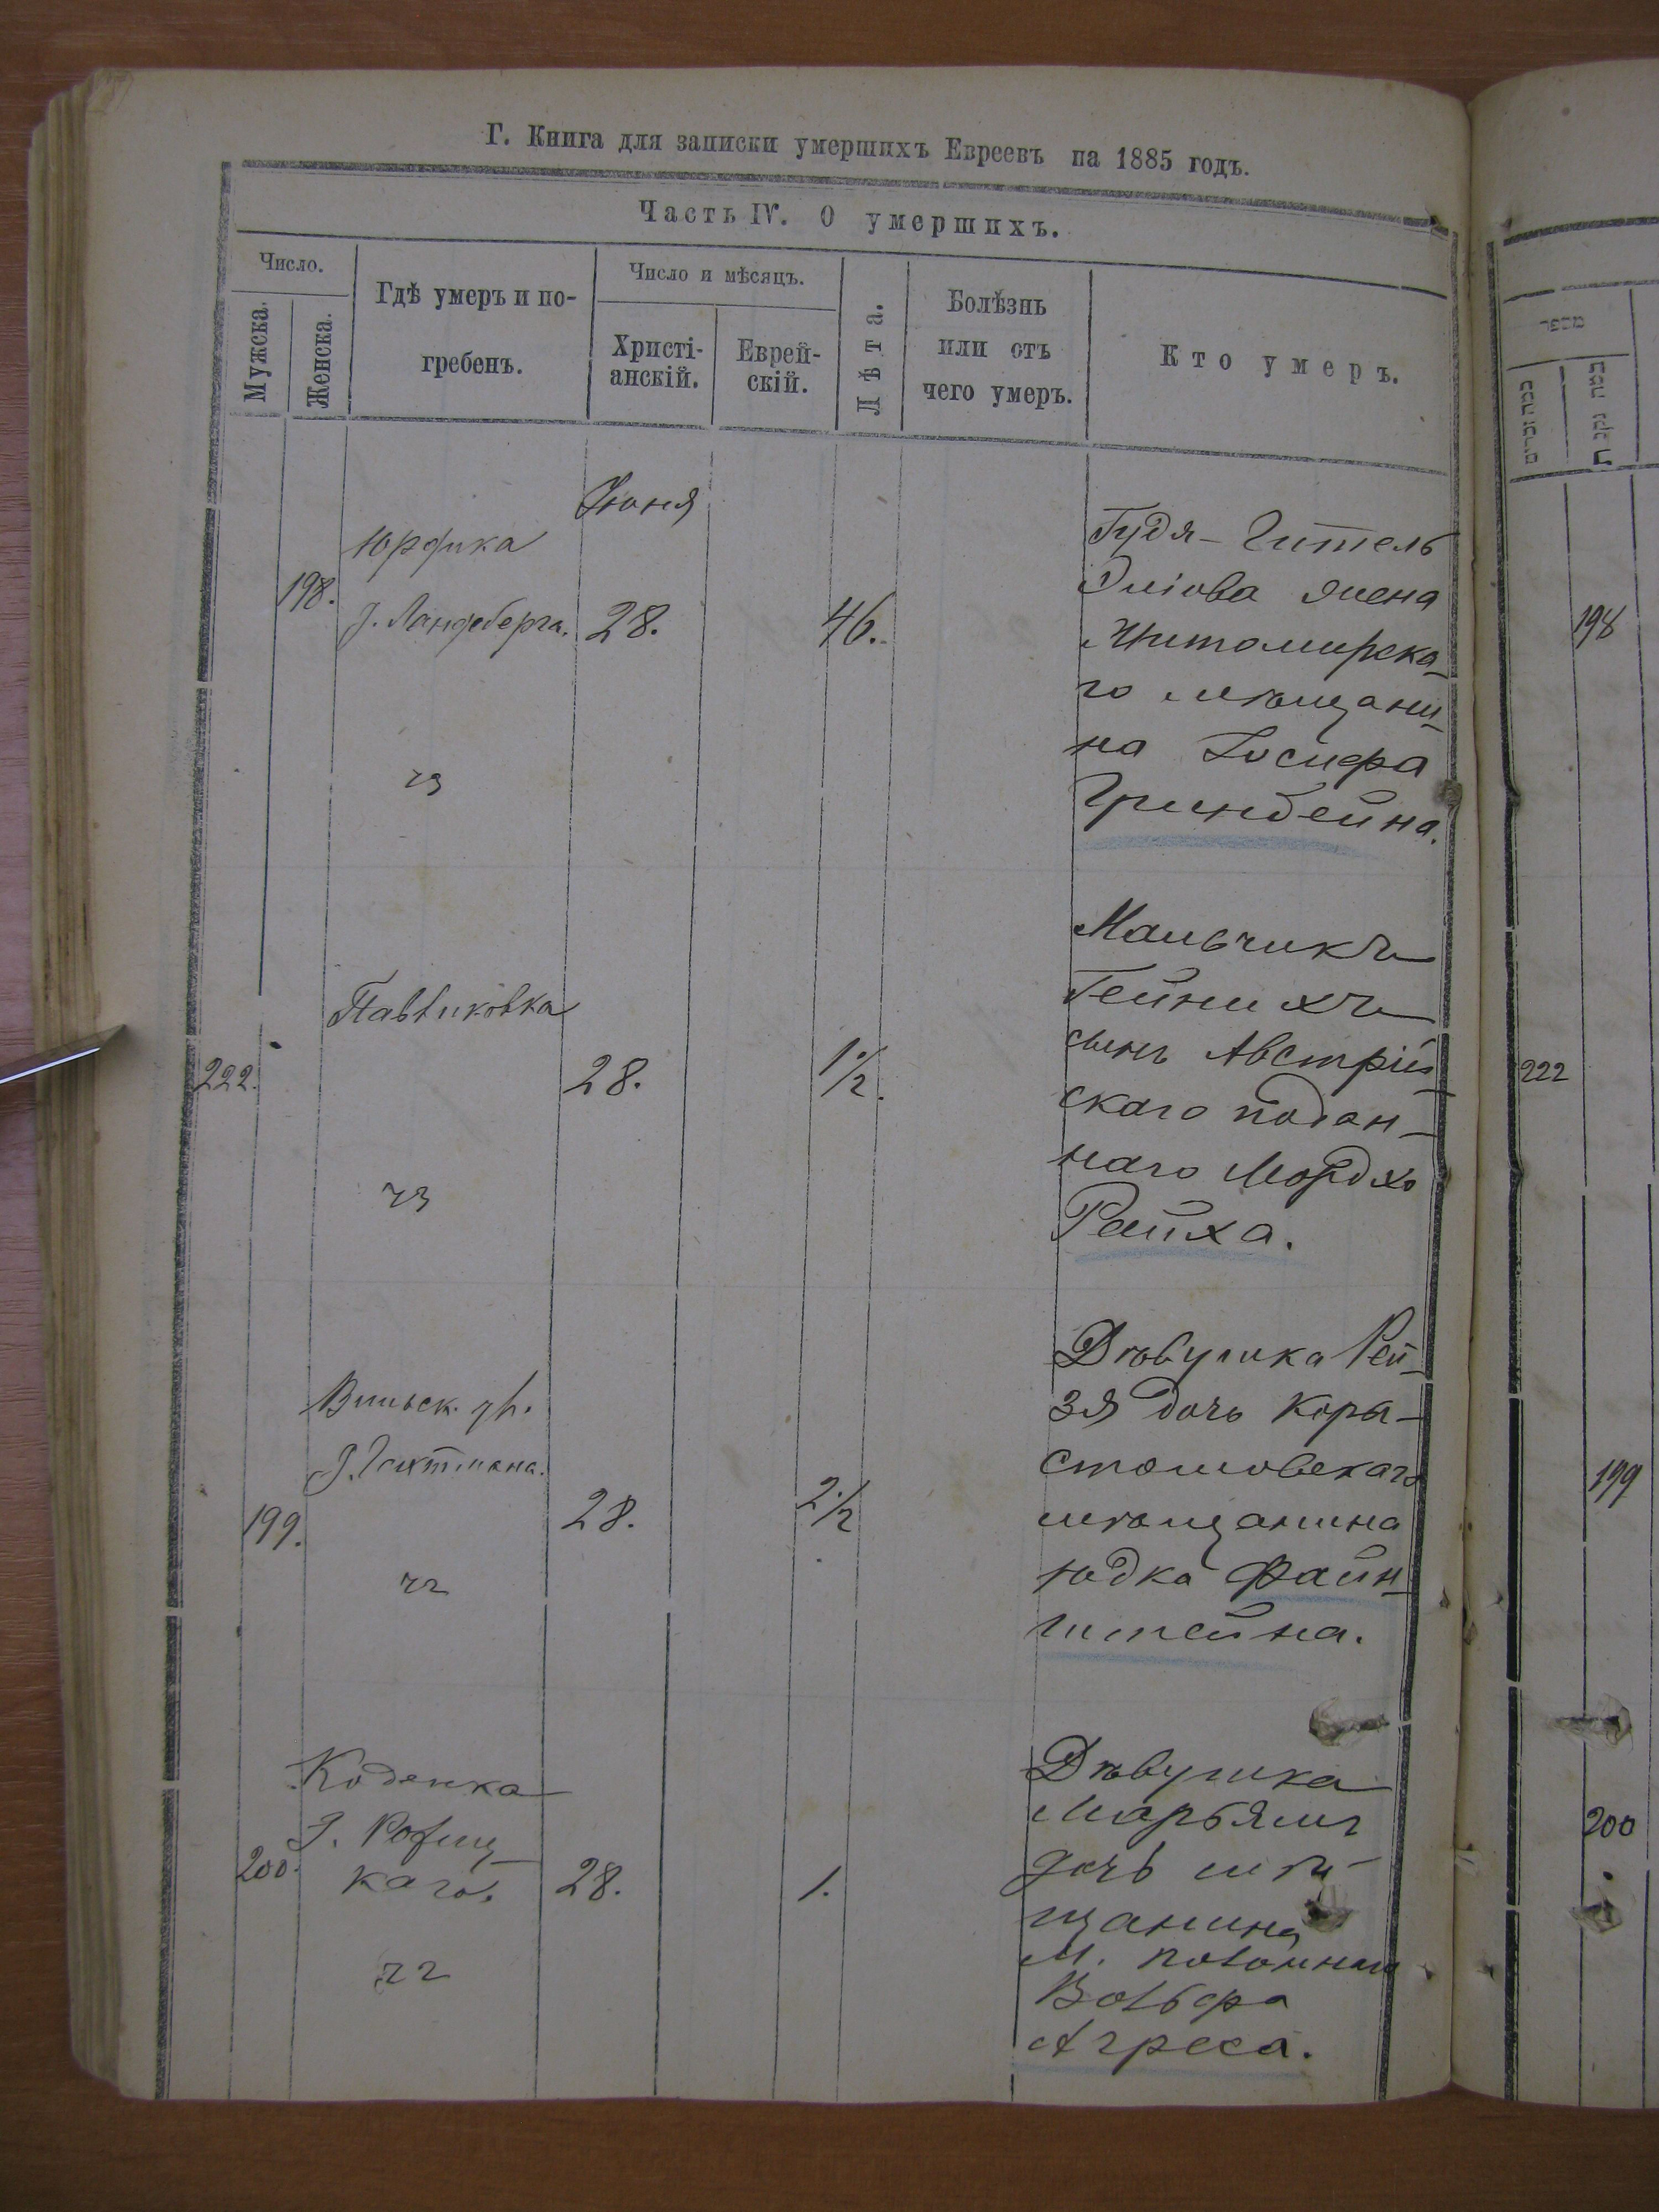 Г. Книга для записки умершихъ Евреевъ на 1885 годъ.
Часть IV. О умершихъ.
Число.
Мужска.
Женска.
Гдѣ умеръ и по-
гребенъ.
Число и мѣсяцъ.
Христі-
анскій.
Еврей-
скій.
Лѣта.
Болѣзнь
или отъ
чего умеръ.
Кто умеръ.
Іюня
198.
Юрдика
28.
46.
Гудя-Гитель
Эліова жена
Житомирска-
го мѣщани-
на Іосифа
Гринбейна.
23
198
222.
Павликовка
28.
1 1/2.
Мальчикъ
Гейнихъ
сынъ Австрій-
скаго подан-
наго Мордхо
Райха.
23
222
199.
Вильск. ул.
28.
2 1/2
Дѣвушка Рей-
зя дочь Коры-
стошовскаго
мѣщанина
Юдка Файн-
штейна.
22
199
200.
Коденка
каго.
28.
1.
Дѣвушка
Марьямъ
дочь мѣ-
щанина
М.
Вольфа
Агреса.
22
200